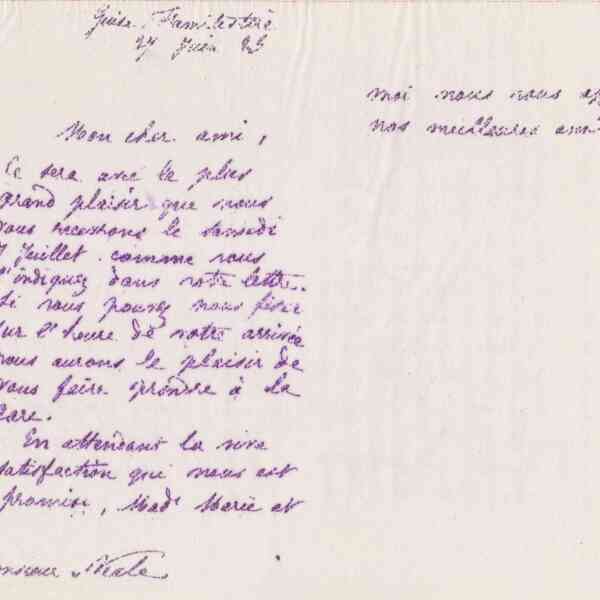 Guise Familistère
27 Juin 83
Mon cher ami,
Ce sera avec le plus
grand plaisir que nous
vous recevrons le samedi
7 Juillet comme vous
l'indiquez dans votre lettre.
Si vous pouvez nous fixer
sur l'heure de votre arrivée
nous aurons le plaisir de
vous faire prendre à la
Gare.
En attendant la vive
satisfaction qui nous est
promise, Made Marie et
Monsieur Neale
moi nous nous
nos meilleures